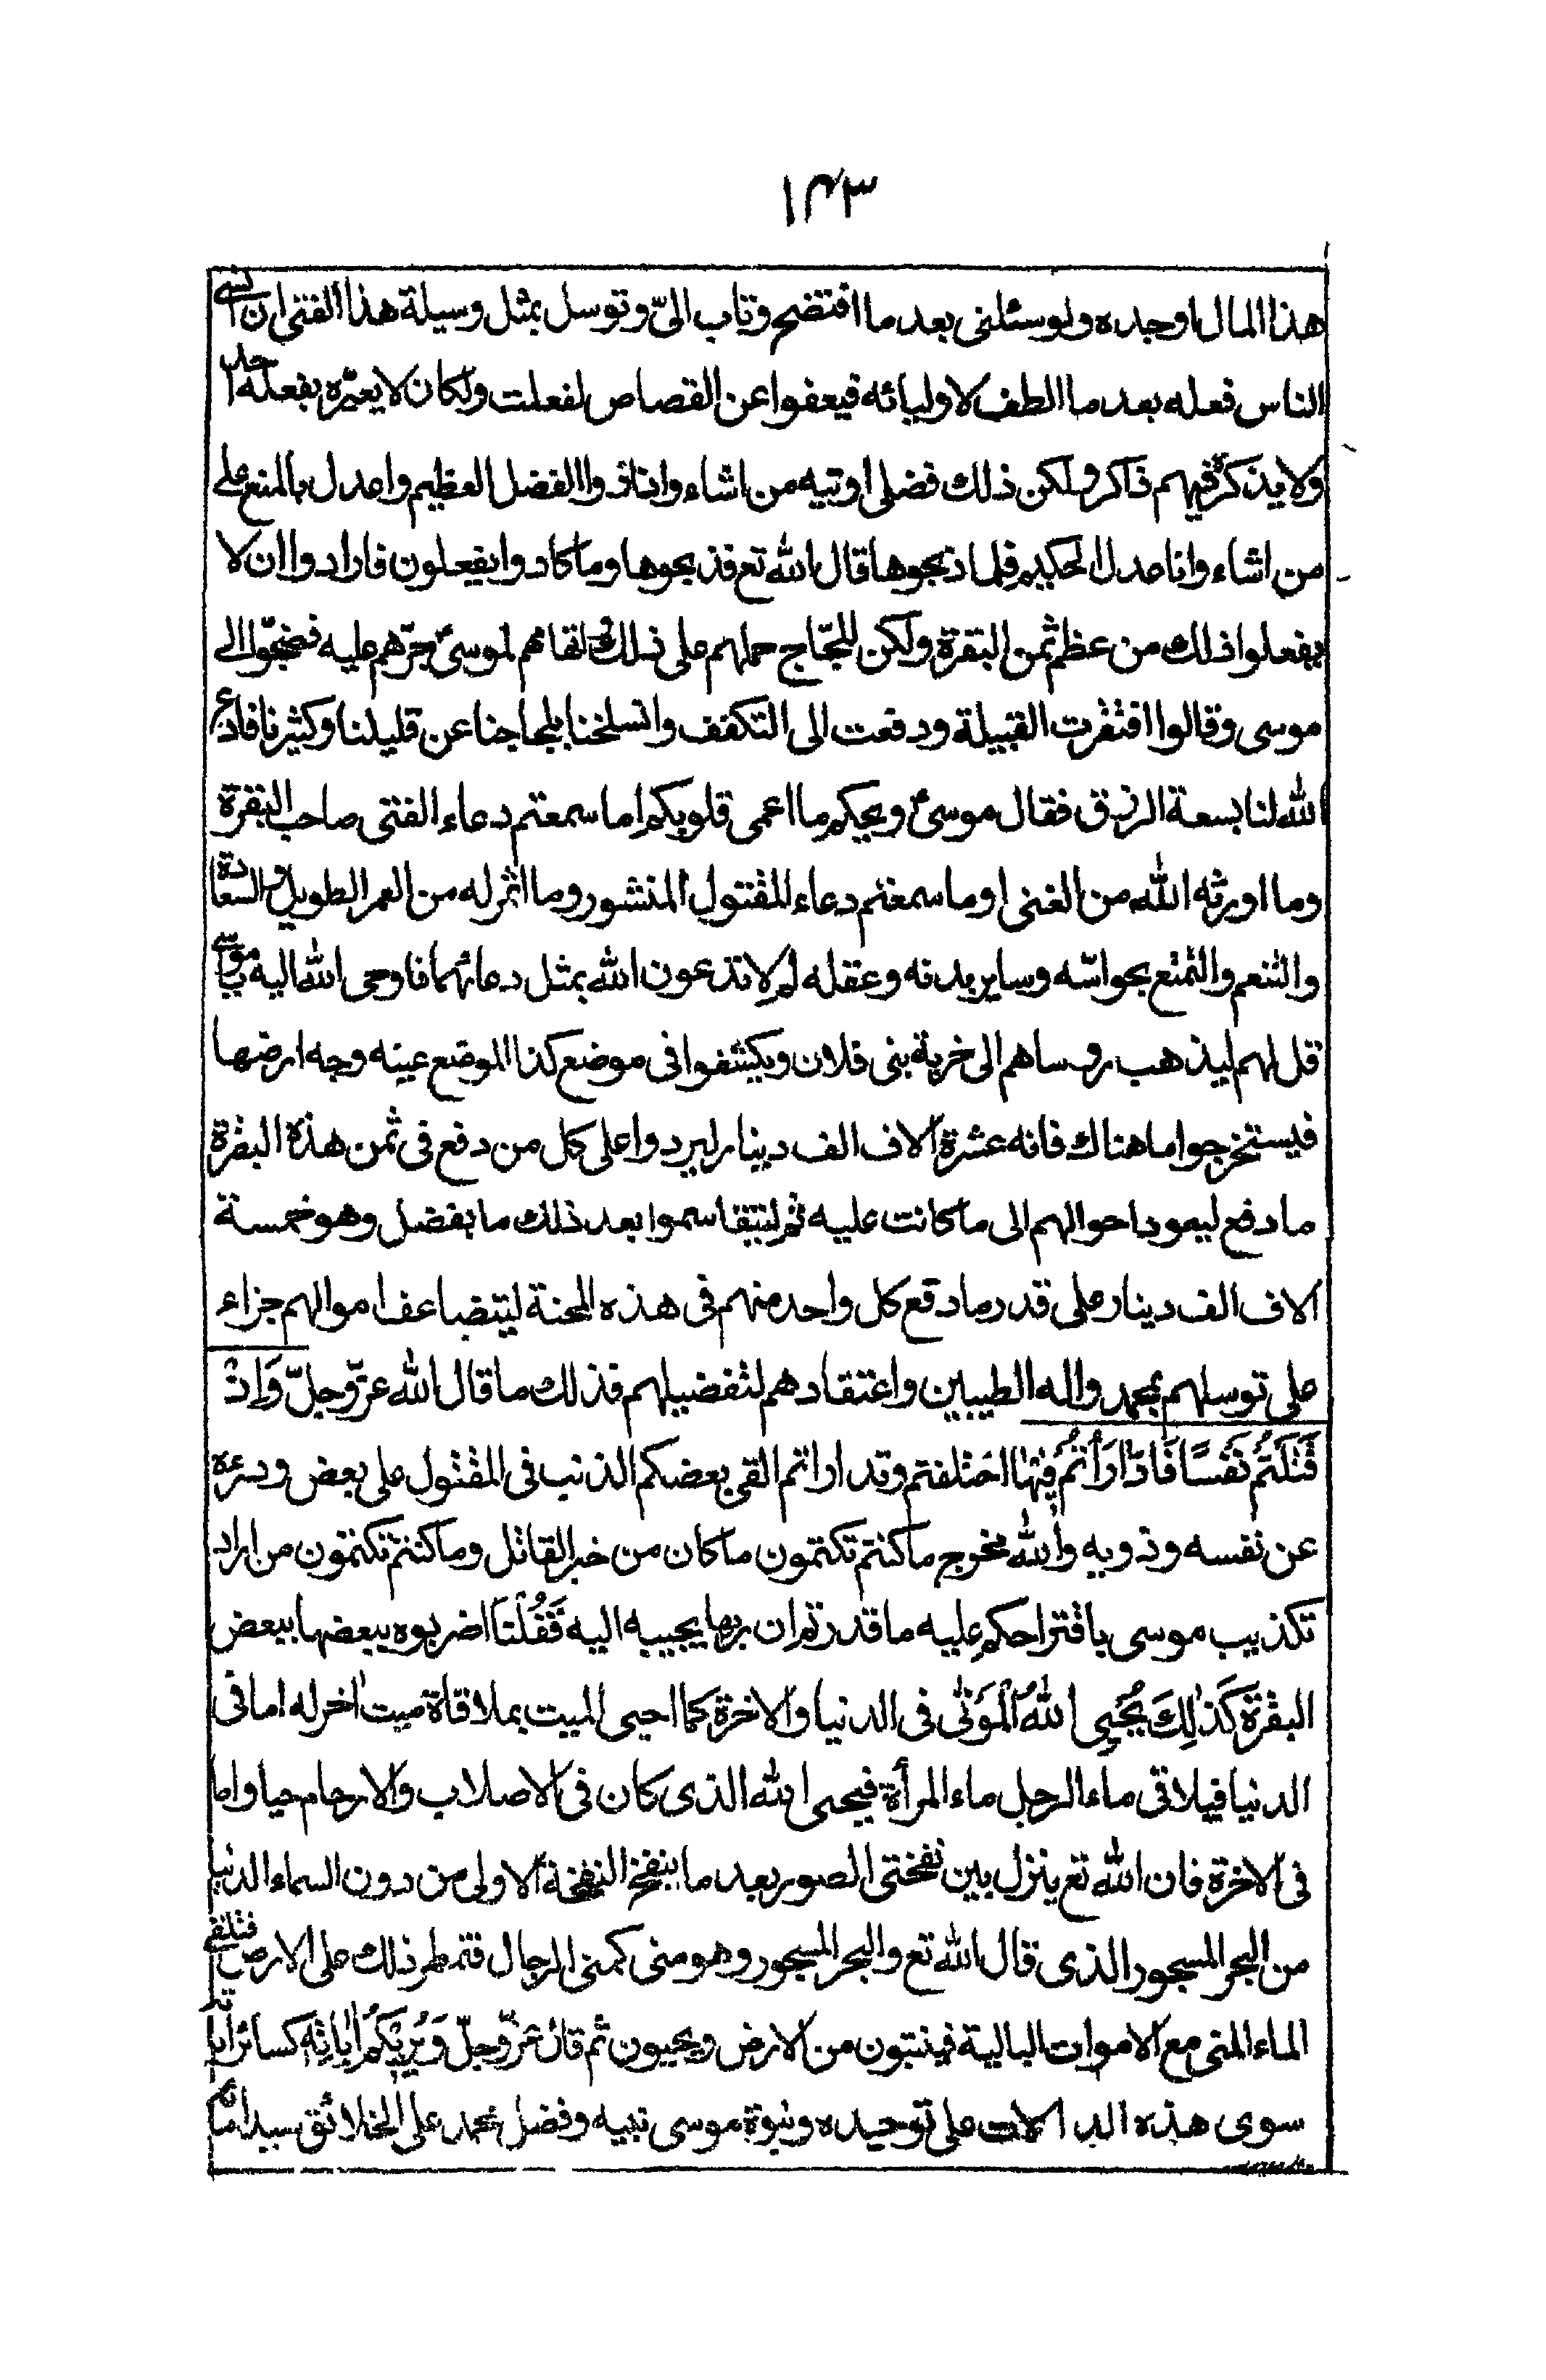 ١٤٣
هذا المال اوجده ولو سئلنى بعد ما افتضح وتاب الىّ وتوسل بمثل وسيلة هذا الفتى ان انسى
الناس فعله بعد ما الطف لاوليائه فيعفوا عن القصاص لفعلت ولكان لا يعيّره بفعله احد
ولا يذكره فيهم ذاكر ولكن ذلك فضلى اوتيه من اشاء وانا ذوا الفضل العظيم واعدل بالمنع على
من اشاء وانا عدل الحكيم فلما ذبحوها قال الله تع فذبحوها وما كادوا يفعلون فارادوا ان لا
يفعلوا ذلك من عظم ثمن البقرة ولكن اللجّاج حملهم على ذلك واتهامهم لموسىؑ جرّهم عليه فضجّوا الى
موسى وقالوا افتقرت القبيلة ودفعت الى التكفف وانسلخنا بلجاجنا عن قليلنا وكثيرنا فادع
الله لنا بسعة الرزق فقال موسىؑ ويحكم ما اعمى قلوبكم اما سمعتم دعاء الفتى صاحب البقرة
وما اورثه الله من الغنى اوما سمعتم دعاء المقتول المنشور وما اثمر له من العمر الطويل والسعادة
والتنعم والتمتع بحواسّه وساير بدنه وعقله لم لا تدعون الله بمثل دعائهما فاوحى الله اليه يا موسى
قل لهم ليذهب روساهم الى خربة بنى فلان ويكشفوا فى موضع كذا الموضع عينه وجه ارضها
فيستخرجوا ما هناك فانه عشرة الاف الف دينار ليردوا على كل من دفع فى ثمن هذه البقرة
ما دفع ليعود احوالهم الى ما كانت عليه ثم ليتقاسموا بعد ذلك ما يفضل وهو خمسة
الاف الف دينار على قدر ما دفع كل واحد منهم فى هذه المحنة ليتضاعف اموالهم جزاء
على توسلهم بمحمد واله الطيبين واعتقادهم لتفضيلهم فذلك ما قال الله عزّ وجلّ وَاِذْ
قَتَلْتُمْ نَفْسًا فَادّٰارَأْتُمْ فِيْهٰا اختلفتم وتداراتم القى بعضكم الذنب فى المقتول على بعض ودرءه
عن نفسه وذويه والله مخرج ما كنتم تكتمون ما كان من خبر القاتل وما كنتم تكتمون من اراد
تكذيب موسى باقتراحكم عليه ما قدرتم ان ربه لا يجيبه اليه فَقُلْنٰا اضربوه ببعضها ببعض
البقرة كَذٰلِكَ يُحْيِى اللهُ الْمَوْتٰى فى الدنيا والاخرة كما احيى الميت بملاقاة ميت اخر له اما فى
الدنيا فيلاقى ماء الرجل ماء المرأة فيحيى الله الذى كان فى الاصلاب والارحام حيا واما
فى الاخرة فان الله تع ينزل بين نفختى الصور بعد ما ينفخ النفخة الاولى من دون السماء الدنيا
من البحر المسجور الذى قال الله تع والبحر المسجور وهو منى كمنى الرجال فتمطر ذلك على الارض فتلقى
الماء المنى مع الاموات البالية فينبتون من الارض ويحيون ثم قال عزّ وجلّ وَيُرِيْكُمْ اٰيٰاتِهِ كسائر اياته
سوى هذه الدلالات على توحيده ونبوة موسى نبيه وفضل محمد على الخلائق سيد امائه